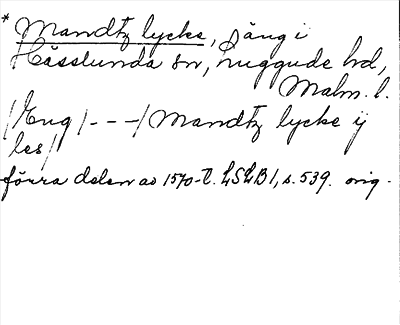 * Mandtz lycke, äng i
Hässlunda sn, Luggude hd,
Malm. l.
/Eng/- - -/Mandtz lycke ij
les/
förra delen av 1570-t. LSLB 1, s. 539. orig.